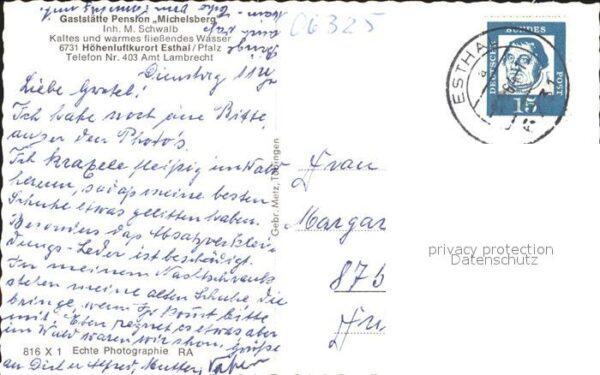 Gaststätte Pension „Michelsberg"
Inh. M. Schwalb
Kaltes und warmes fließendes Wasser
6731 Höhenluftkurort Esthal/Pfalz
Telefon Nr. 403 Amt Lambrecht
06325
Dienstag 11
Liebe Gretel!
Ich habe noch eine Bitte
außer den Photo's.
Ich krapele fleißig im Wald
herum, sodaß meine besten
Schuhe etwas gelitten haben.
Besonders das Absatzverklei-
dungs-Leder ist beschädigt.
In meinem Nachtschrank
stehen meine alten Schuhe die
bringe, wenn Ihr kommt bitte
mit. Eben regnet es etwas aber
im Wald waren wir schon. Grüße
an Dich Alfred, Mutter, Vater
816 X 1 Echte Photographie RA
Gebr. Metz, Tübingen
ESTHAL
DEUTSCHE BUNDESPOST
15
Frau
Margar
875
privacy protection
Datenschutz